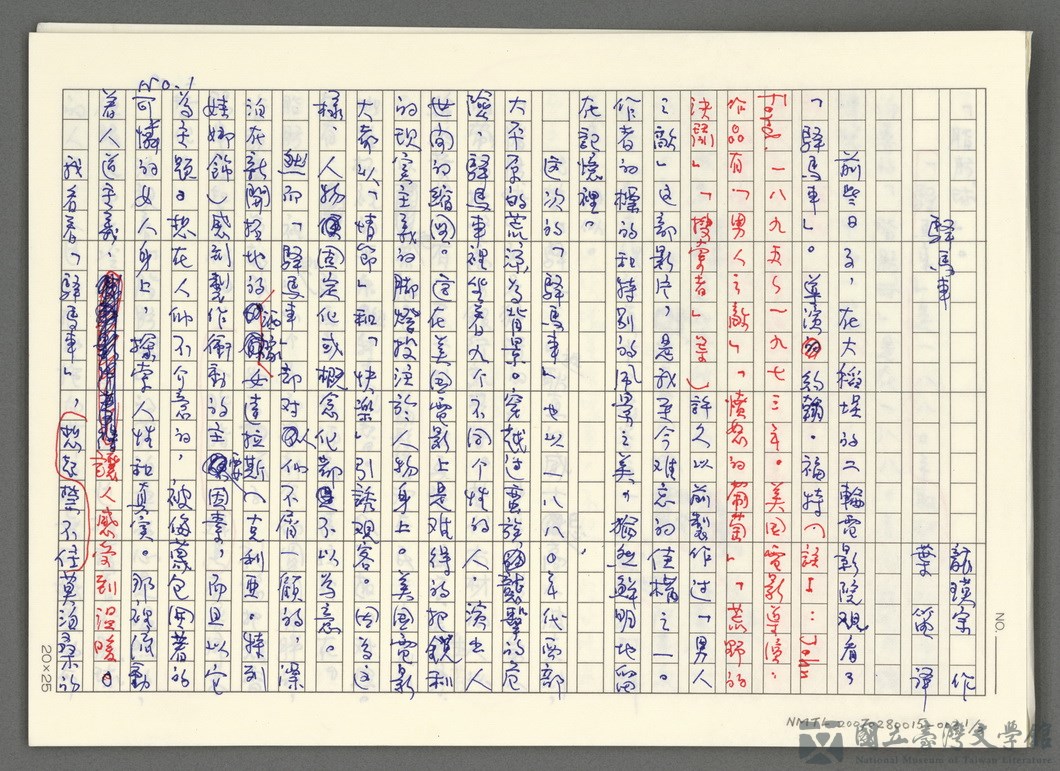 驛馬車
龍瑛宗 作
葉笛 譯
前些日子，在大稻埕的二輪電影院觀看了
「驛馬車」。導演約翰·福特（註1：John
Ford 一八九五～一九七三年。美国電影導演。
作品有「男人之敵」「憤怒的葡萄」「荒野的
決鬪」「搜索者」等）許久以前製作过「男人
之敵」这部影片，是我至今难忘的佳構之一。
作者的樸的和特別的風景之美，獨然鮮明地留
在記憶裡。
这次的「驛馬車」也以一八八〇年代西部
大平原的荒涼為背景。穿越过蛮族襲擊的危
險，驛馬車裡坐着九个不同个性的人，演出人
世间的縮圖。这在美国電影上是难得的把鏡利
的现实主義的脚燈投注於人物身上。美国電影
大都以「情節」和「快樂」引誘观客。因為这
樣，人物固定化或概念化都是不以為意。
然而「驛馬車」却对人们不屑一顧的，深
泊在新開拓地的酒家女達拉斯（克利亞·特列
娃姆飾）感到製作衝動的主要因素，而且以它
為主題。想在人们不介意的，被侮蔑包圍着的
可憐的女人身上，探索人性和真实。那裡流動
着人道主義，讓人感受到温暖。
我看着「驛馬車」，想起禁不住莫泊桑的
No.1
NO.
20×25
NMTL 20070280015
國立臺灣文學館
National Museum of Taiwan Literature